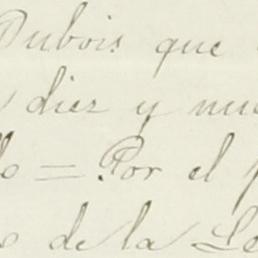 Dubois que
diez y nue
= Por el
de la